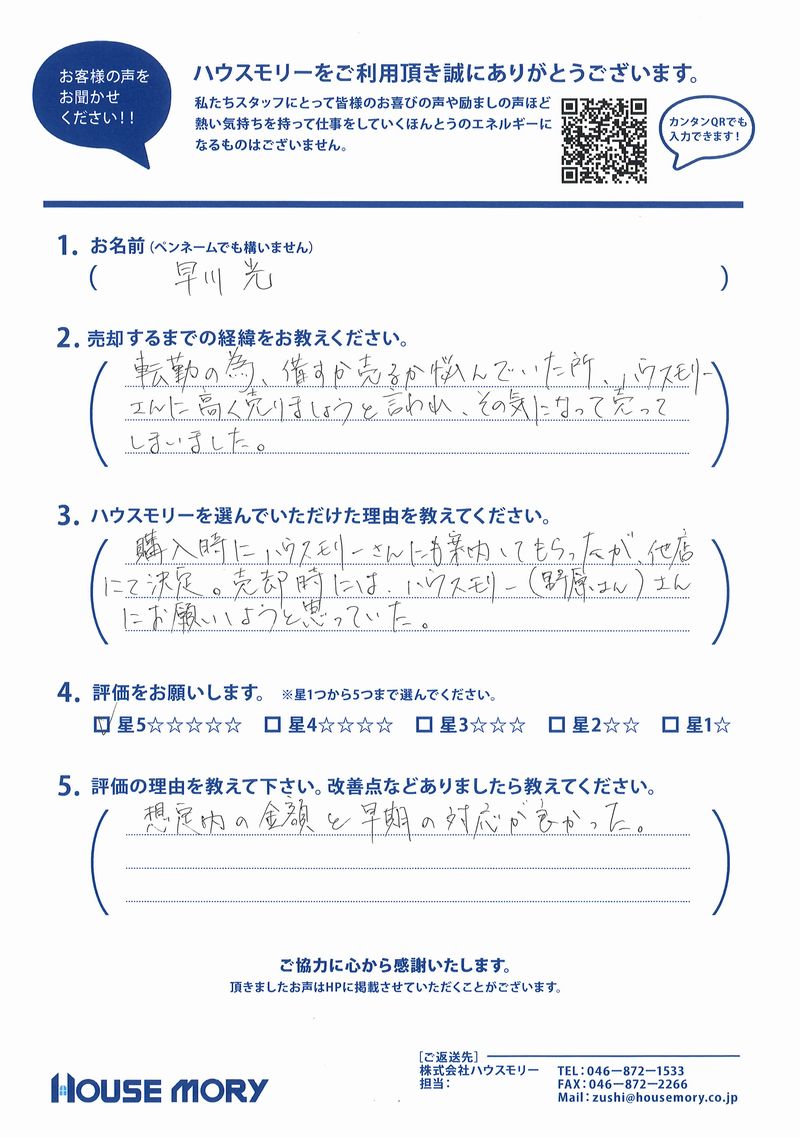 お客様の声を
お聞かせ
ください！！
ハウスモリーをご利用頂き誠にありがとうございます。
私たちスタッフにとって皆様のお喜びの声や励ましの声ほど
熱い気持ちを持って仕事をしていくほんとうのエネルギーに
なるものはございません。
カンタンQRでも
入力できます！
1. お名前（ペンネームでも構いません）
（ 早川 光 ）
2. 売却するまでの経緯をお教えください。
転勤の為、借すか売るか悩んでいた所、ハウスモリー
さんに高く売りましょうと言われ、その気になって売って
しまいました。
3. ハウスモリーを選んでいただけた理由を教えてください。
購入時にハウスモリーさんにも案内してもらったが、他店
にて決定。売却時には、ハウスモリー（野原さん）さん
にお願いしようと思っていた。
4. 評価をお願いします。 ※星1つから5つまで選んでください。
☑ 星5☆☆☆☆☆ □ 星4☆☆☆☆ □ 星3☆☆☆ □ 星2☆☆ □ 星1☆
5. 評価の理由を教えて下さい。改善点などありましたら教えてください。
想定内の金額と早期の対応が良かった。
ご協力に心から感謝いたします。
頂きましたお声はHPに掲載させていただくことがございます。
HOUSE MORY
［ご返送先］
株式会社ハウスモリー TEL：046－872－1533
担当： FAX：046－872－2266
Mail：zushi@housemory.co.jp